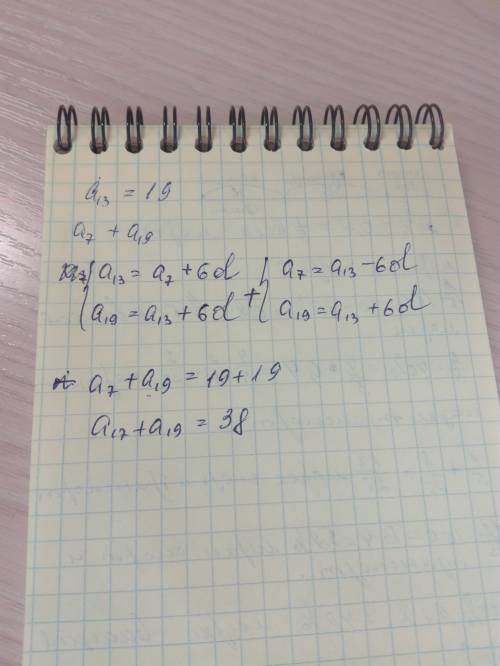 a₁₃ = 19
a₇ + a₁₉
{ a₁₃ = a₇ + 6d + { a₇ = a₁₃ - 6d
{ a₁₉ = a₁₃ + 6d { a₁₉ = a₁₃ + 6d
a₇ + a₁₉ = 19 + 19
a₁₇ + a₁₉ = 38